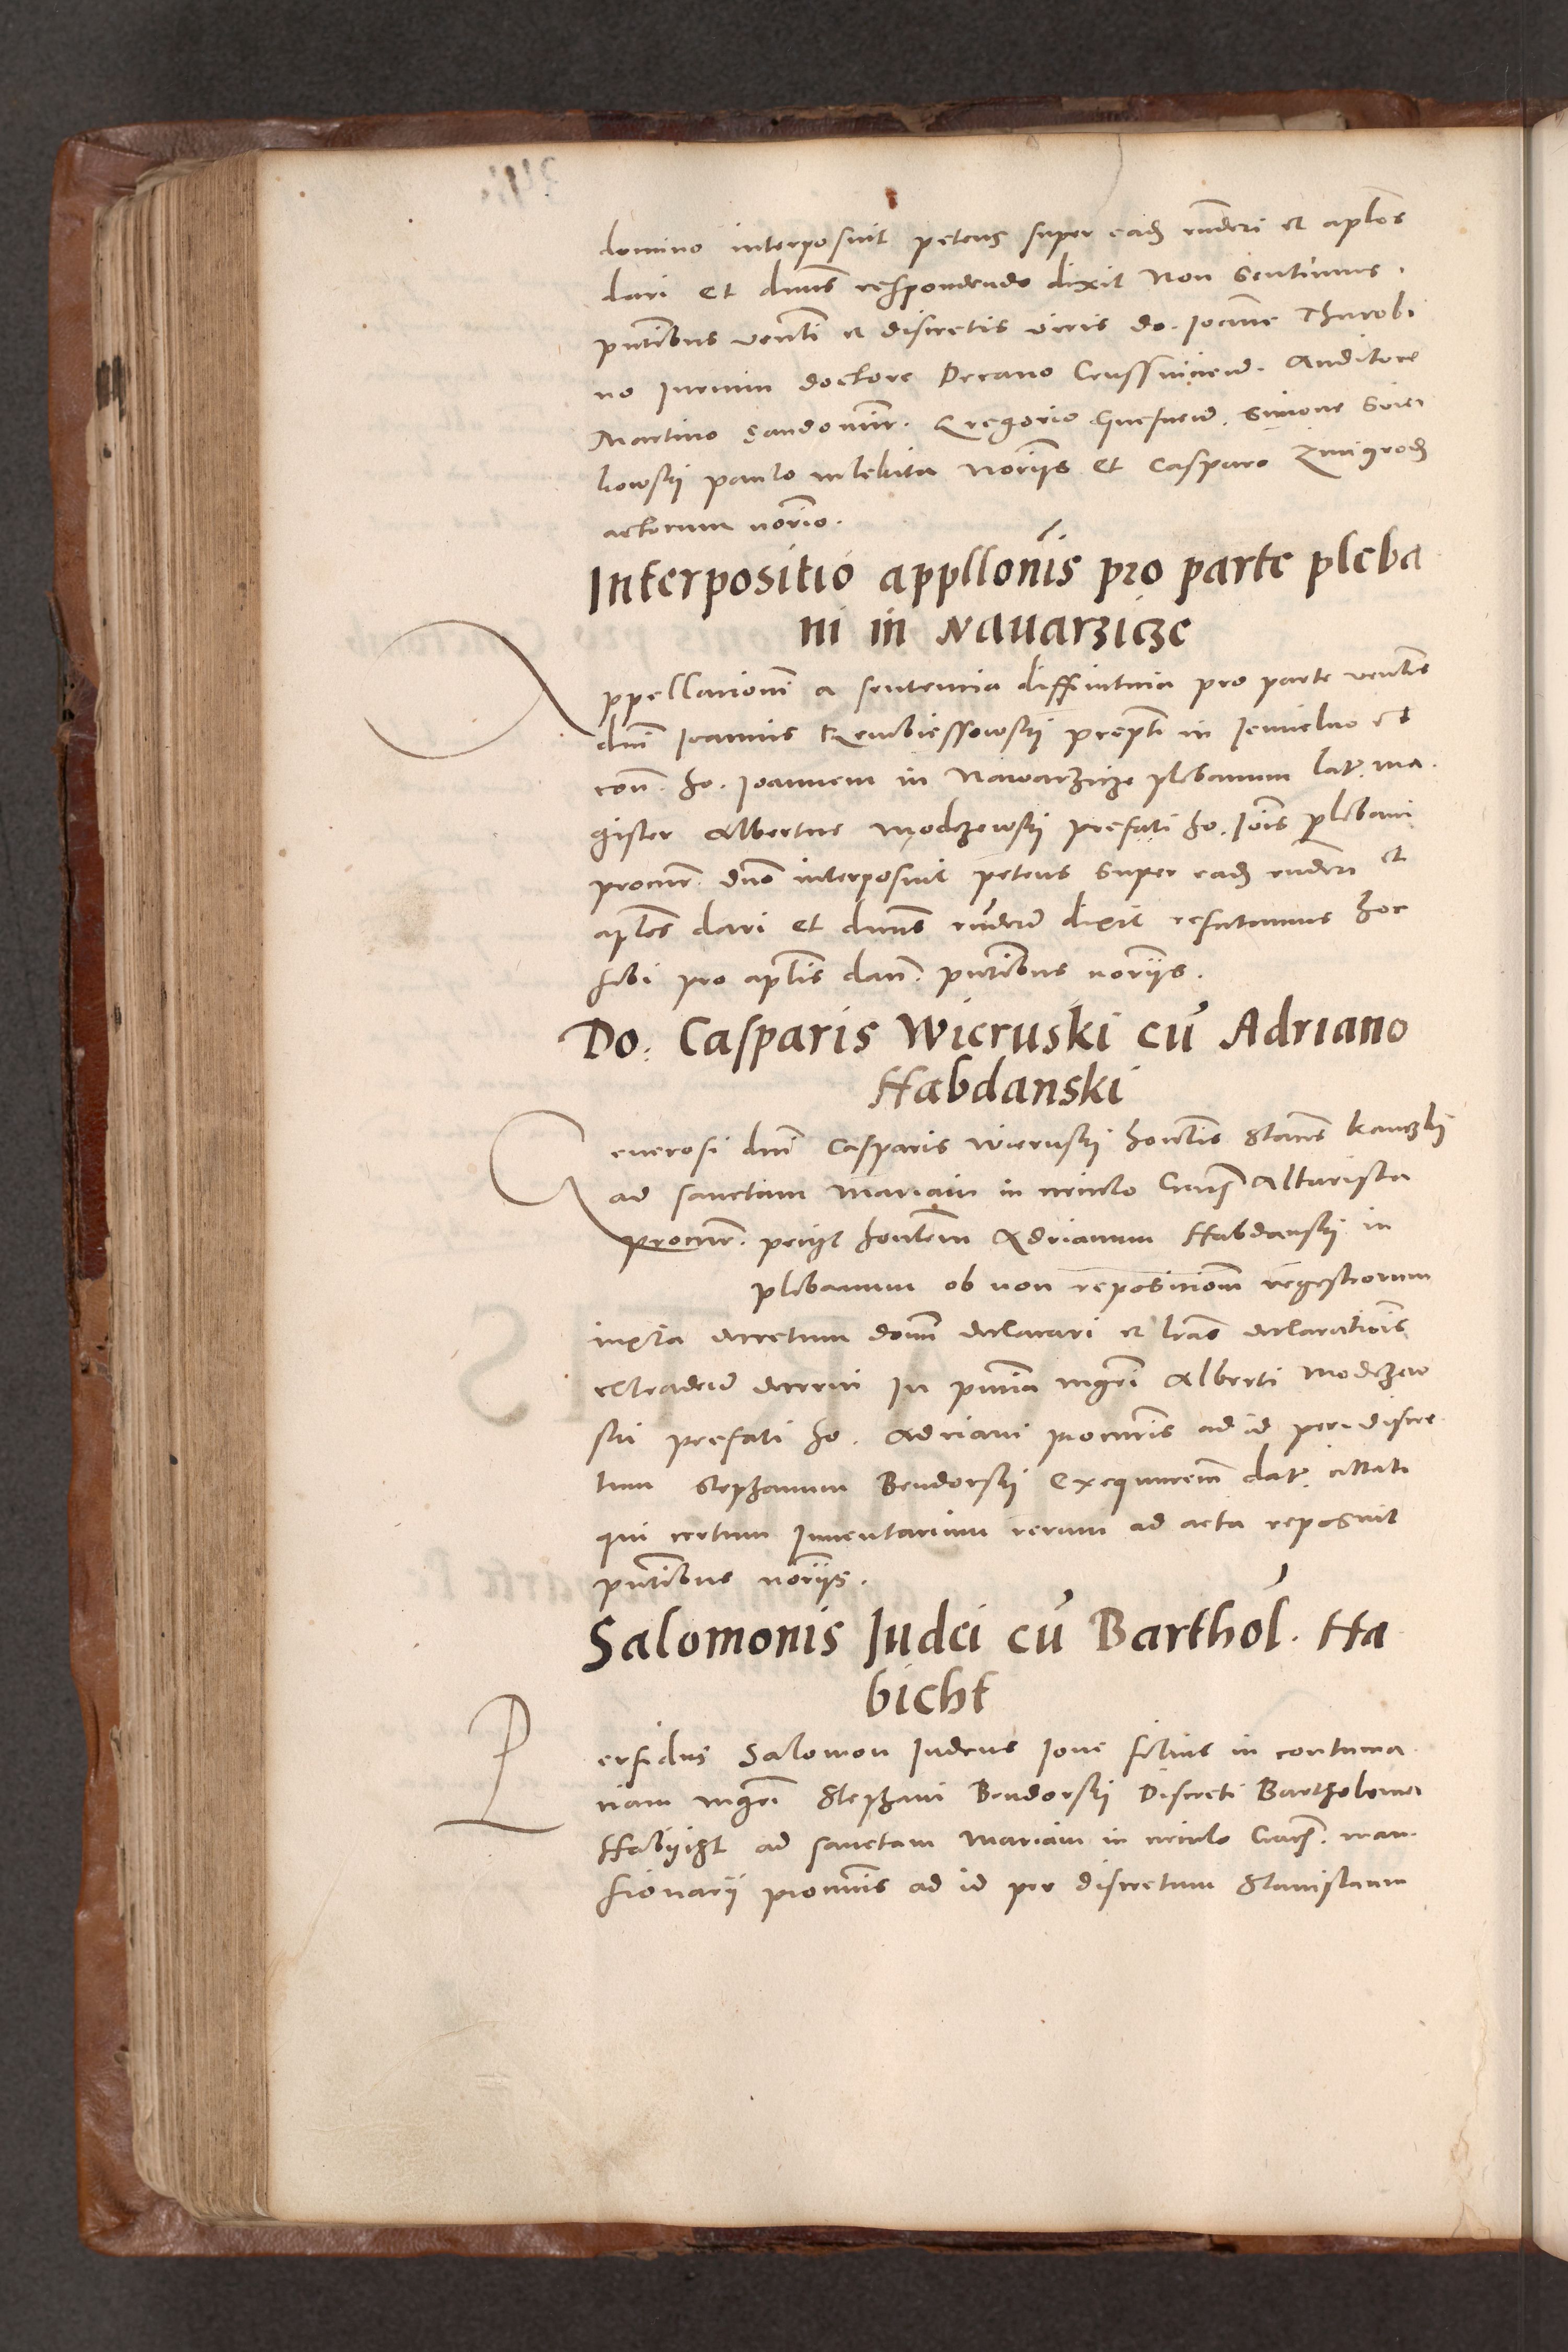 domino interposuit petens super eadẽ rñderi et aplos
dari et dñus respondendo dixit Non sentimus.
pñtibus venli et discretis viris do. Ioanne Thurobi
no Iurium doctore Decano Crussvicieñ. Auditore
Martino Sandomir. Gregorio Gnesneñ. Simone
kowskij paulo mlekita Norijs et Casparo Zmigrodz
actorum norio.
Interpositio appllonis pro parte pleba
ni in Navarzicze
Appellationem a sententia diffinitiva pro parte venlis
dni Ioannis Rembiessowskij prepti in Iemielno et
con. ho. Ioannem in Nawarzicze plebanum lat. ma
gister Albertus Modczewskij prefati ho. Iois plebani
procur. dno interposuit petens super eadẽ rnderi et
aplos dari et dnus rnden dixit refutamus hoc
sibi pro aplis dan. pntibus norijs.
Do. Casparis Wieruski cu Adriano
Habdanski
Generosi dni Casparis Wieruskij honlis Stanis kanczkij
ad sanctam Mariam in circulo Crac. Altarista
procur. peciit honlem Adrianum Habdanskij in
plebanum ob non repositionem regestrorum
iuxta decretum domi declarari et lras declarationis
extraden decerni In pntia mgri Alberti Modczew
ski prefati ho. Adriani procuris ad id per discre
tum Stephanum Bendorskij Exequutorem dat. cittati
qui certum Inventarium rerum ad acta reposuit
pntibus norijs.
Salomonis Iudei cu Barthol. Ha
bicht
Perfidus Salomon Iudeus Ione filius in contuma
ciam mgri Stephani Bendorskij Discreti Bartholomei
Habijcht ad sanctam Mariam in circulo Crac. man
sionarij procuris ad id per discretum Stanislaum